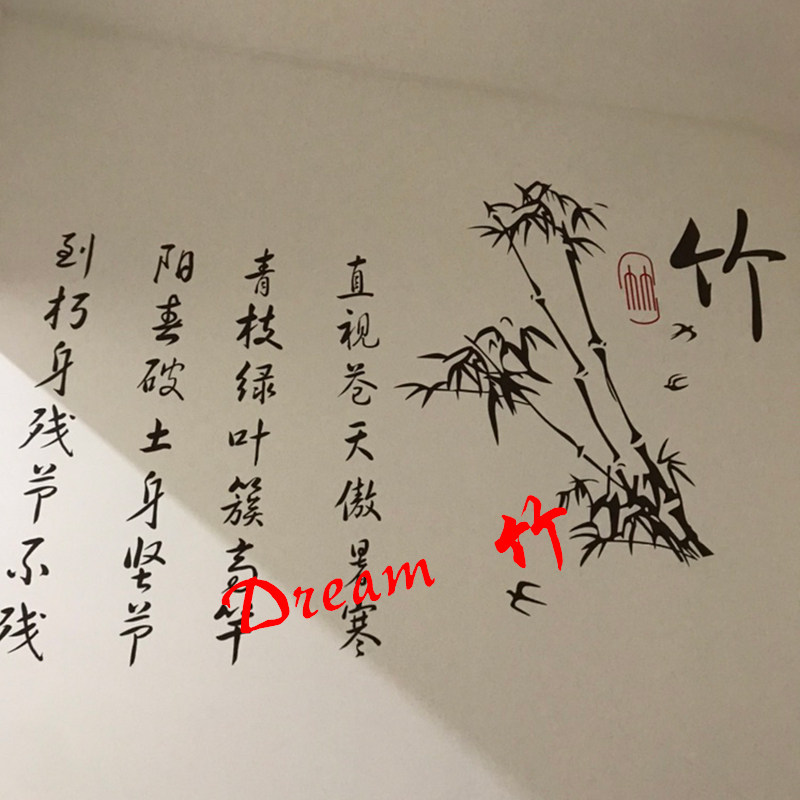 竹
林
直视苍天傲暑寒
青枝绿叶簇高竿
阳春破土身坚节
到朽身残节不残
Dream 竹